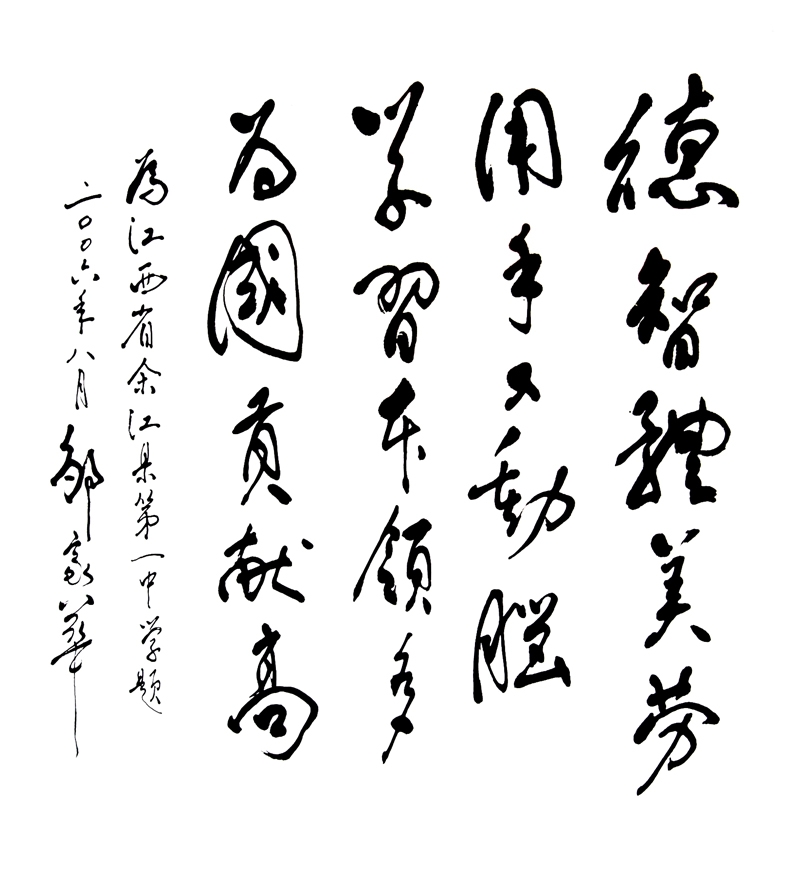 德智體美劳
用手又動腦
学習本領多
为國貢献高
為江西省余江县第一中学题
二〇〇六年八月 邹家華